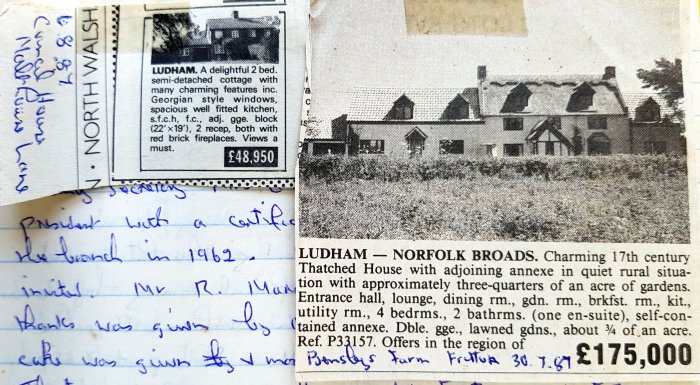 6.8.87
Council House
Malthouse Lane
N • NORTH WALSH
LUDHAM. A delightful 2 bed.
semi-detached cottage with
many charming features inc.
Georgian style windows,
spacious well fitted kitchen,
s.f.c.h, f.c., adj. gge. block
(22'×19'), 2 recep, both with
red brick fireplaces. Views a
must.
£48,950
secretary
president with a certific
the branch in 1962.
invited. Mr R. Man
thanks was given by
cake was given by
LUDHAM — NORFOLK BROADS. Charming 17th century
Thatched House with adjoining annexe in quiet rural situa-
tion with approximately three-quarters of an acre of gardens.
Entrance hall, lounge, dining rm., gdn. rm., brkfst. rm., kit.,
utility rm., 4 bedrms., 2 bathrms. (one en-suite), self-con-
tained annexe. Dble. gge., lawned gdns., about ¾ of an acre.
Ref. P33157. Offers in the region of
£175,000
Bensleys Farm Fritton 30.7.87